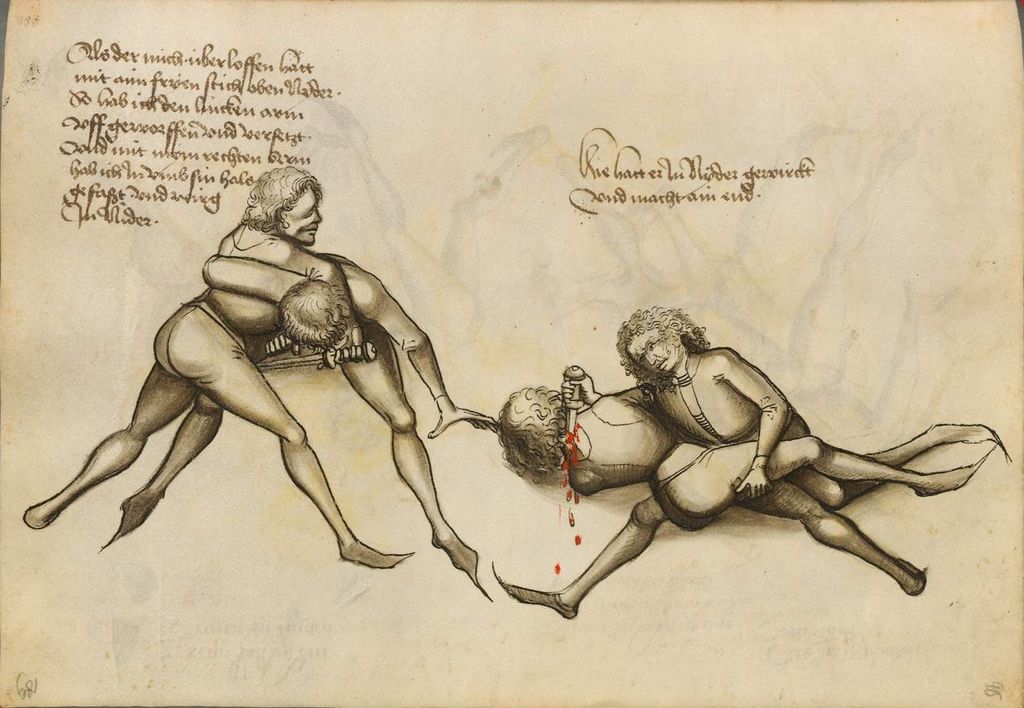 Als der mich überloffen hått
mit aim fryen stich oben Nyder.
So hab ich den lincken arm
Vff geworffen Vnd versetzt.
Vnd mit mym rechten Arm
hab ich In Vmb sin hals
gefaßt Vnd wirg
In Nider.
Hie hatt er In Nyder gewirckt
Vnd macht ain end.